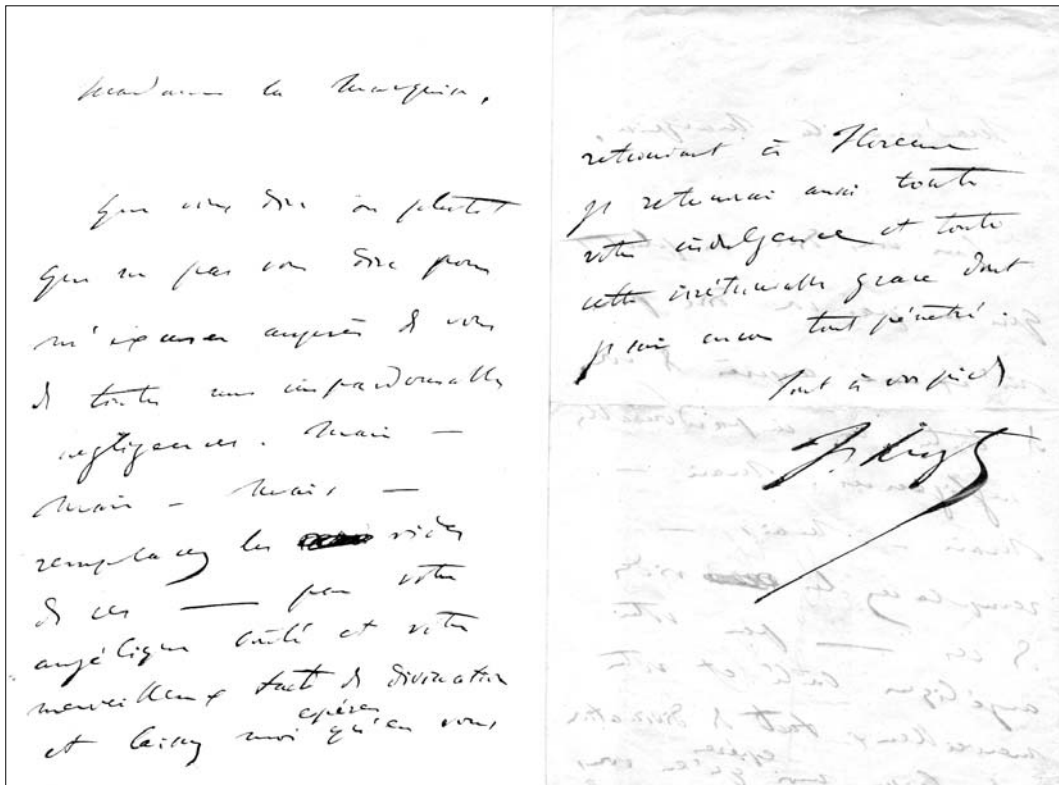 Madame la Marquise,
Que vous dire ou plutôt
Que ne pas vous dire pour
m'excuser auprès de vous
de toutes mes impardonnables
négligences. Mais —
Mais — Mais —
remplacez les vides
de ces — par votre
angélique bonté et votre
merveilleux tact de divination
et laissez moi espérer qu'en vous
retrouvant à Florence
je retrouverai aussi toute
votre indulgence et toute
cette grace dont
je suis encore tout pénétré.
Tout à vos pieds
F. Liszt